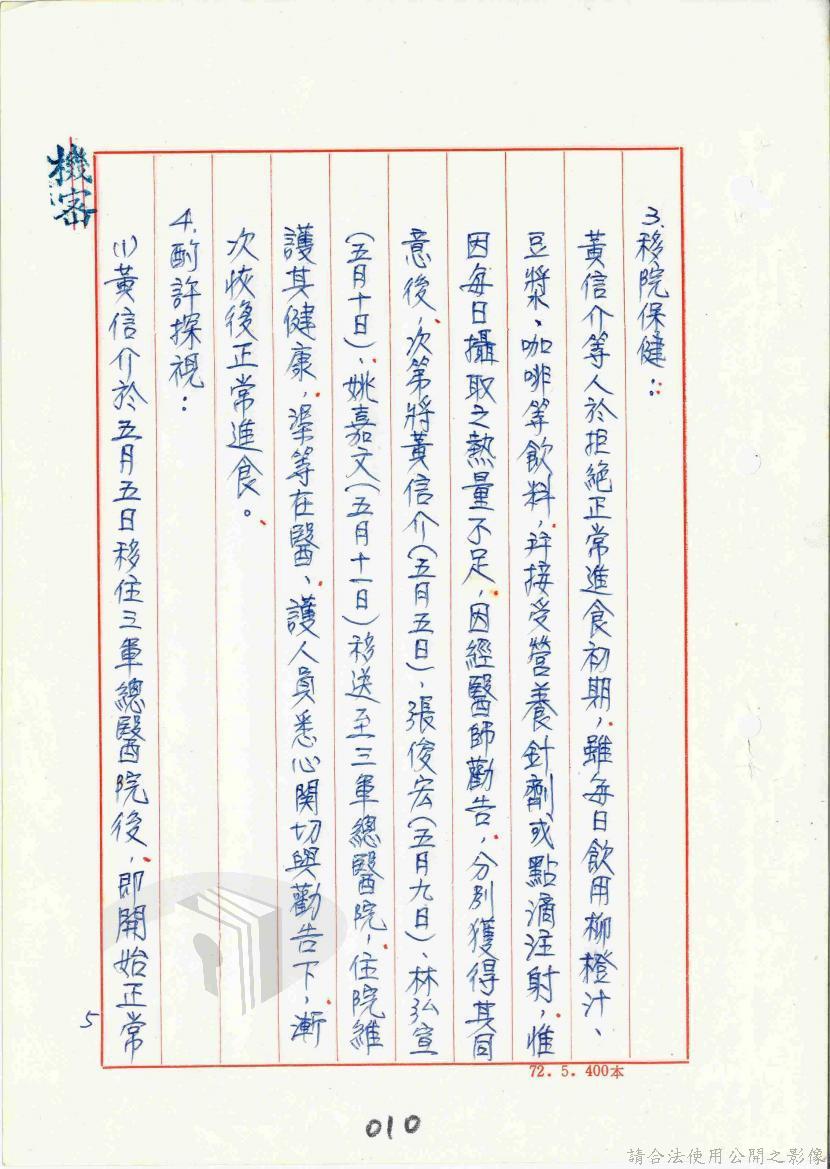 機密
3.移院保健：
黃信介等人於拒絕正常進食初期，雖每日飲用柳橙汁、
豆漿、咖啡等飲料，并接受營養針劑或點滴注射，惟
因每日攝取之熱量不足，因經醫師勸告，分別獲得其同
意後，次第將黃信介（五月五日）、張俊宏（五月九日）、林弘宣
（五月十日）、姚嘉文（五月十一日）移送至三軍總醫院，住院維
護其健康，渠等在醫、護人員悉心関切與勸告下，漸
次恢復正常進食。
4.酌許探視：
(1)黃信介於五月五日移住三軍總醫院後，即開始正常
5
72.5.400本
010
請合法使用公開之影像